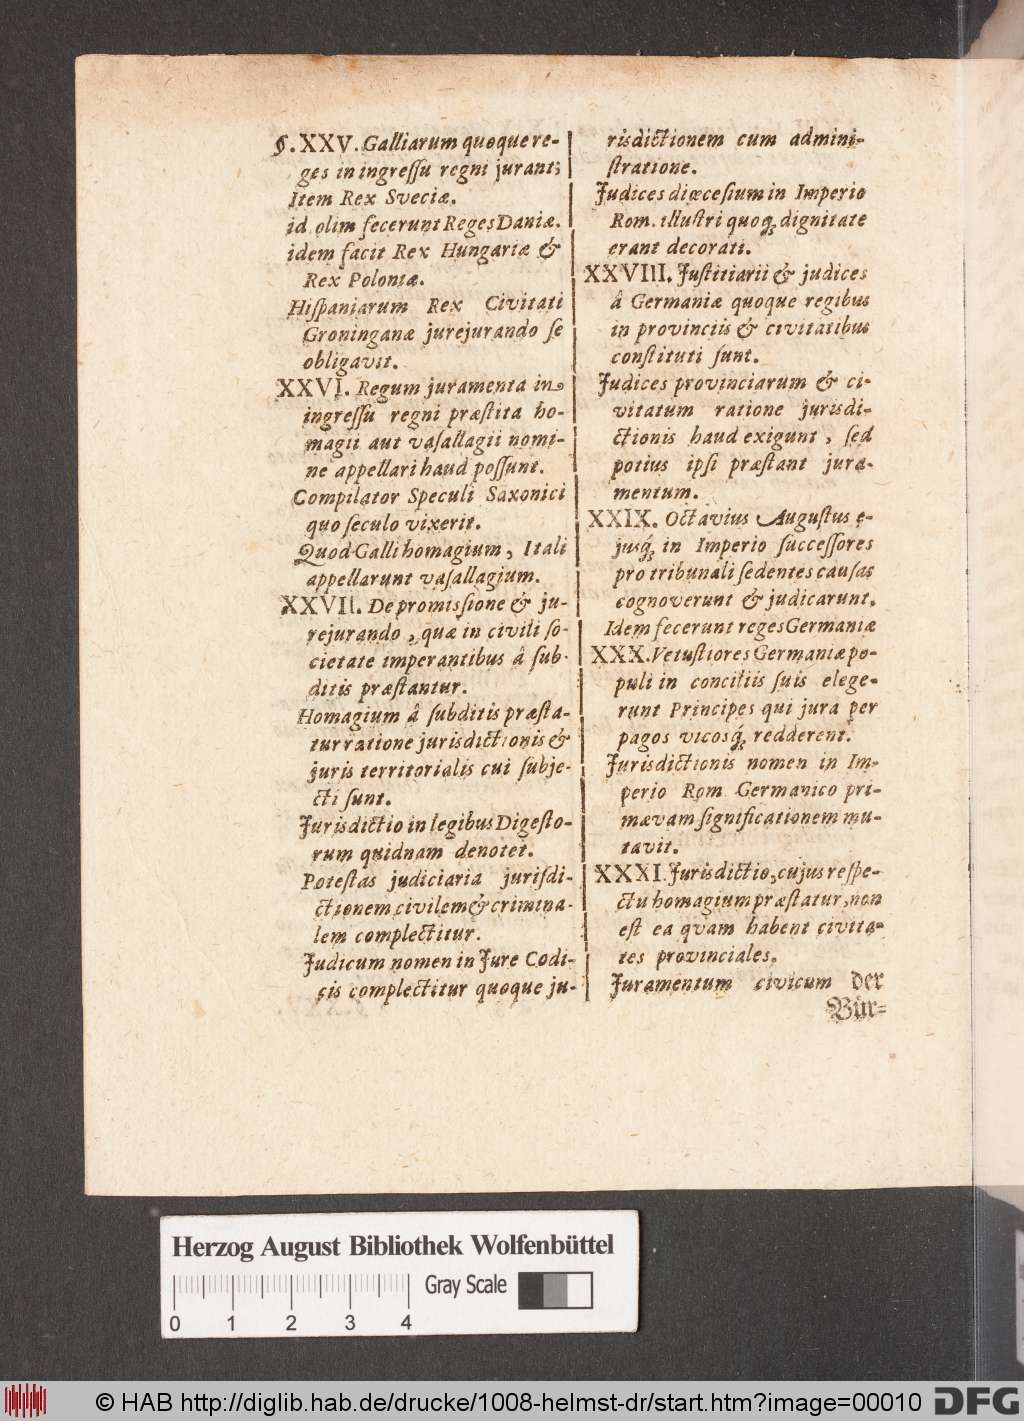 §. XXV. Galliarum quoque re-
ges in ingreſſu regni jurant;
Item Rex Sveciæ.
id olim fecerunt Reges Daniæ.
idem facit Rex Hungariæ &
Rex Poloniæ.
Hiſpaniarum Rex Civitati
Groninganæ jurejurando ſe
obligavit.
XXVI. Regum juramenta in
ingreſſu regni præſtita ho-
magii aut vaſallagii nomi-
ne appellari haud poſſunt.
Compilator Speculi Saxonici
quo ſeculo vixerit.
Quod Galli homagium, Itali
appellarunt vaſallagium.
XXVII. De promisſione & ju-
rejurando, quæ in civili ſo-
cietate imperantibus â ſub-
ditis præſtantur.
Homagium â ſubditis præſta-
tur ratione jurisdictionis &
juris territorialis cui ſubje-
cti ſunt.
Jurisdictio in legibus Digeſto-
rum quidnam denotet.
Poteſtas judiciaria juriſdi-
ctionem civilem & crimina-
lem complectitur.
Judicum nomen in Jure Codi-
cis complectitur quoque ju-
risdictionem cum admini-
ſtratione.
Judices diœceſium in Imperio
Rom. illuſtri quoq; dignitate
erant decorati.
XXVIII. Juſtitiarii & judices
â Germaniæ quoque regibus
in provinciis & civitatibus
conſtituti ſunt.
Judices provinciarum & ci-
vitatum ratione jurisdi-
ctionis haud exigunt, ſed
potius ipſi præſtant jura-
mentum.
XXIX. Octavius Auguſtus e-
jusq́; in Imperio ſucceſſores
pro tribunali ſedentes cauſas
cognoverunt & judicarunt.
Idem fecerunt reges Germaniæ
XXX. Vetuſtiores Germaniæ po-
puli in conciliis ſuis elege-
runt Principes qui jura per
pagos vicosq́; redderent.
Jurisdictionis nomen in Im-
perio Rom Germanico pri-
mævam ſignificationem mu-
tavit.
XXXI. Jurisdictio, cujus reſpe-
ctu homagium præſtatur, non
eſt ea qvam habent civita-
tes provinciales.
Juramentum civicum der
Bür-
Herzog August Bibliothek Wolfenbüttel
Gray Scale
0 1 2 3 4
© HAB http://diglib.hab.de/drucke/1008-helmst-dr/start.htm?image=00010
DFG